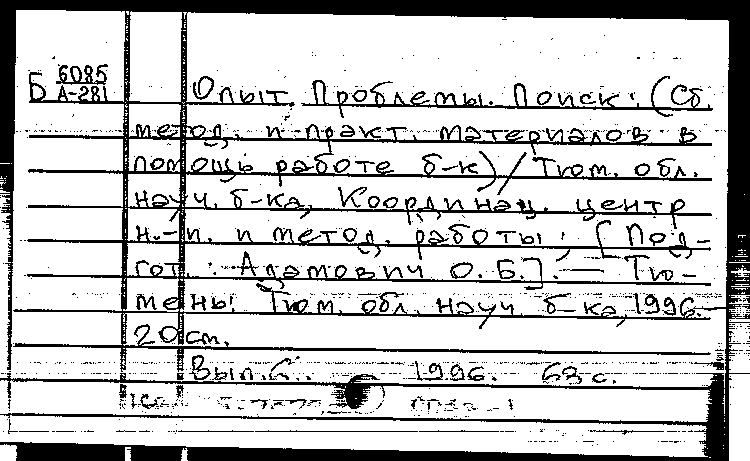 Б 6085
А-281
Опыт. Проблемы. Поиск: (Сб.
метод. и практ. материалов в
помощь работе б-к) / Тюм. обл.
науч. б-ка, Координац. центр
н.-и. и метод. работы; [Под-
гот.: Адамович О. Б.]. — Тю-
мень: Тюм. обл. науч. б-ка, 1996.
20 см.
Вып. 6. 1996. 68 с.